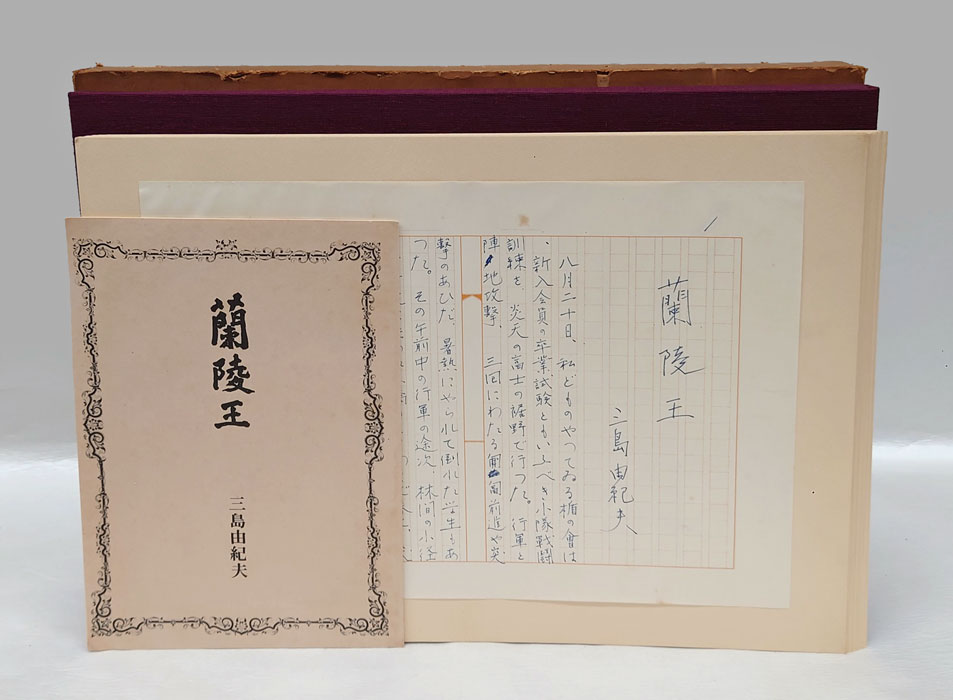 蘭陵王
三島由紀夫
蘭陵王
三島由紀夫
八月二十日、私どものやつてゐる楯の會は
、新入会員の卒業試験ともいふべき小隊戦闘
訓練を、炎天の富士の裾野で行つた。行軍と
陣地攻撃、三回にわたる匍匐前進や突
撃のあひだ、暑熱にやられて倒れた学生もあ
つた。その午前中の行軍の途次、林間の小径